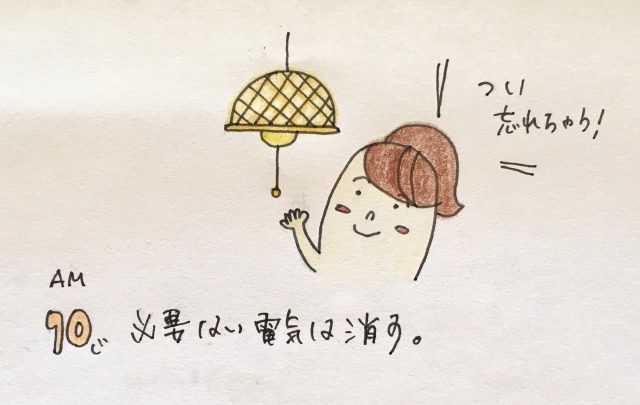 つい
忘れちゃう!
AM
10じ 必要ない電気は消す。